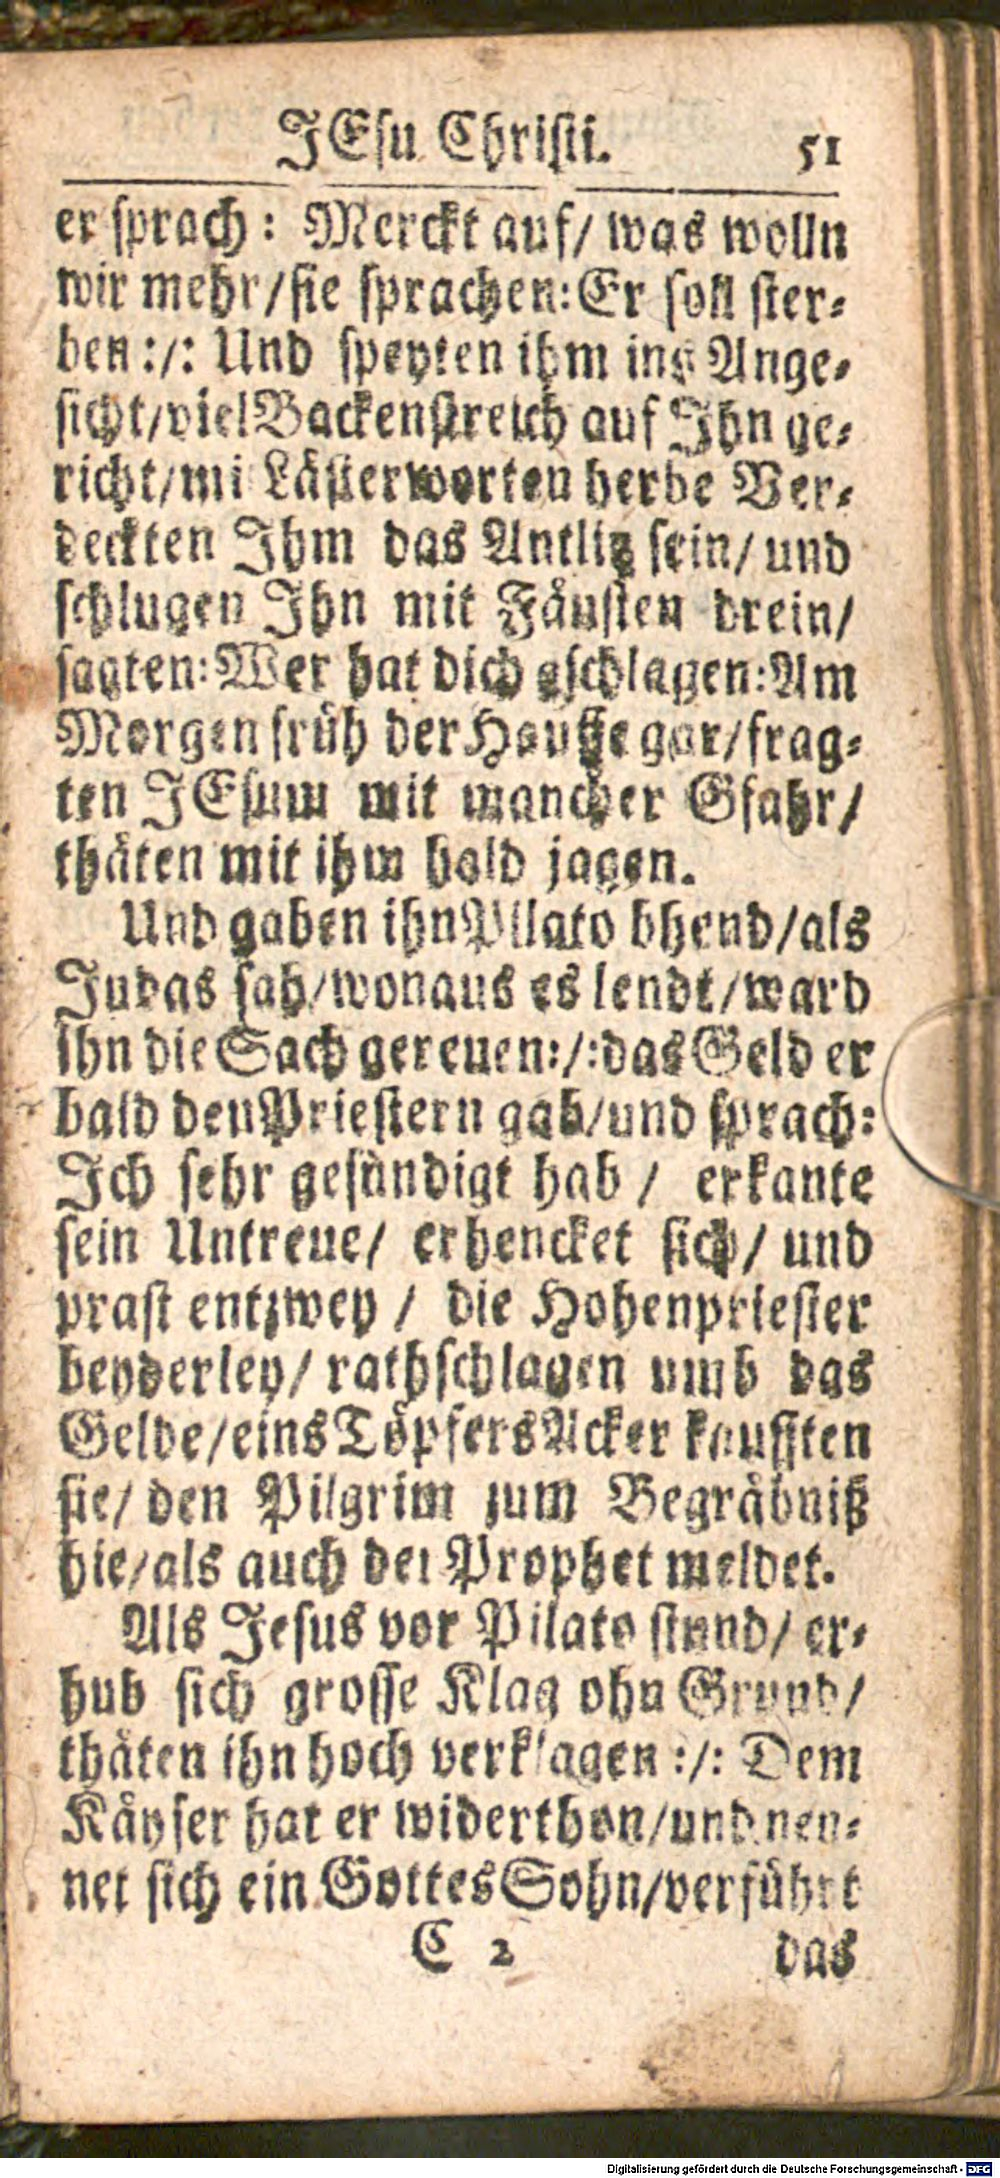 JEsu Christi. 51
er sprach: Merckt auf/ was wolln
wir mehr/sie sprachen: Er soll ster-
ben:/: Und speyten ihm ins Ange-
sicht/viel Backenstreich auf Ihn ge-
richt/mi Lästerworten herbe Ver-
deckten Ihm das Antlitz sein/ und
schlugen Ihn mit Fäusten drein/
sagten: Wer hat dich gschlagen: Am
Morgen früh der Hauffe gar/frag-
ten JEsum mit mancher Gfahr/
thäten mit ihm bald jagen.
Und gaben ihn Pilato bhend/als
Judas sah/wonaus es lendt/ward
ihn die Sach gereuen:/: das Geld er
bald den Priestern gab/und sprach:
Ich sehr gesündigt hab / erkante
sein Untreue/ erhencket sich/ und
prast entzwey / die Hohenpriester
beyderley/ rathschlagen umb das
Gelde/eins Töpfers Acker kaufften
sie/ den Pilgrim zum Begräbniß
hie/als auch der Prophet meldet.
Als Jesus vor Pilato stund/ er-
hub sich grosse Klag ohn Grund/
thäten ihn hoch verklagen:/: Dem
Käyser hat er widerthon/und nen-
net sich ein Gottes Sohn/verführt
C 2 das
Digitalisierung gefördert durch die Deutsche Forschungsgemeinschaft - DFG